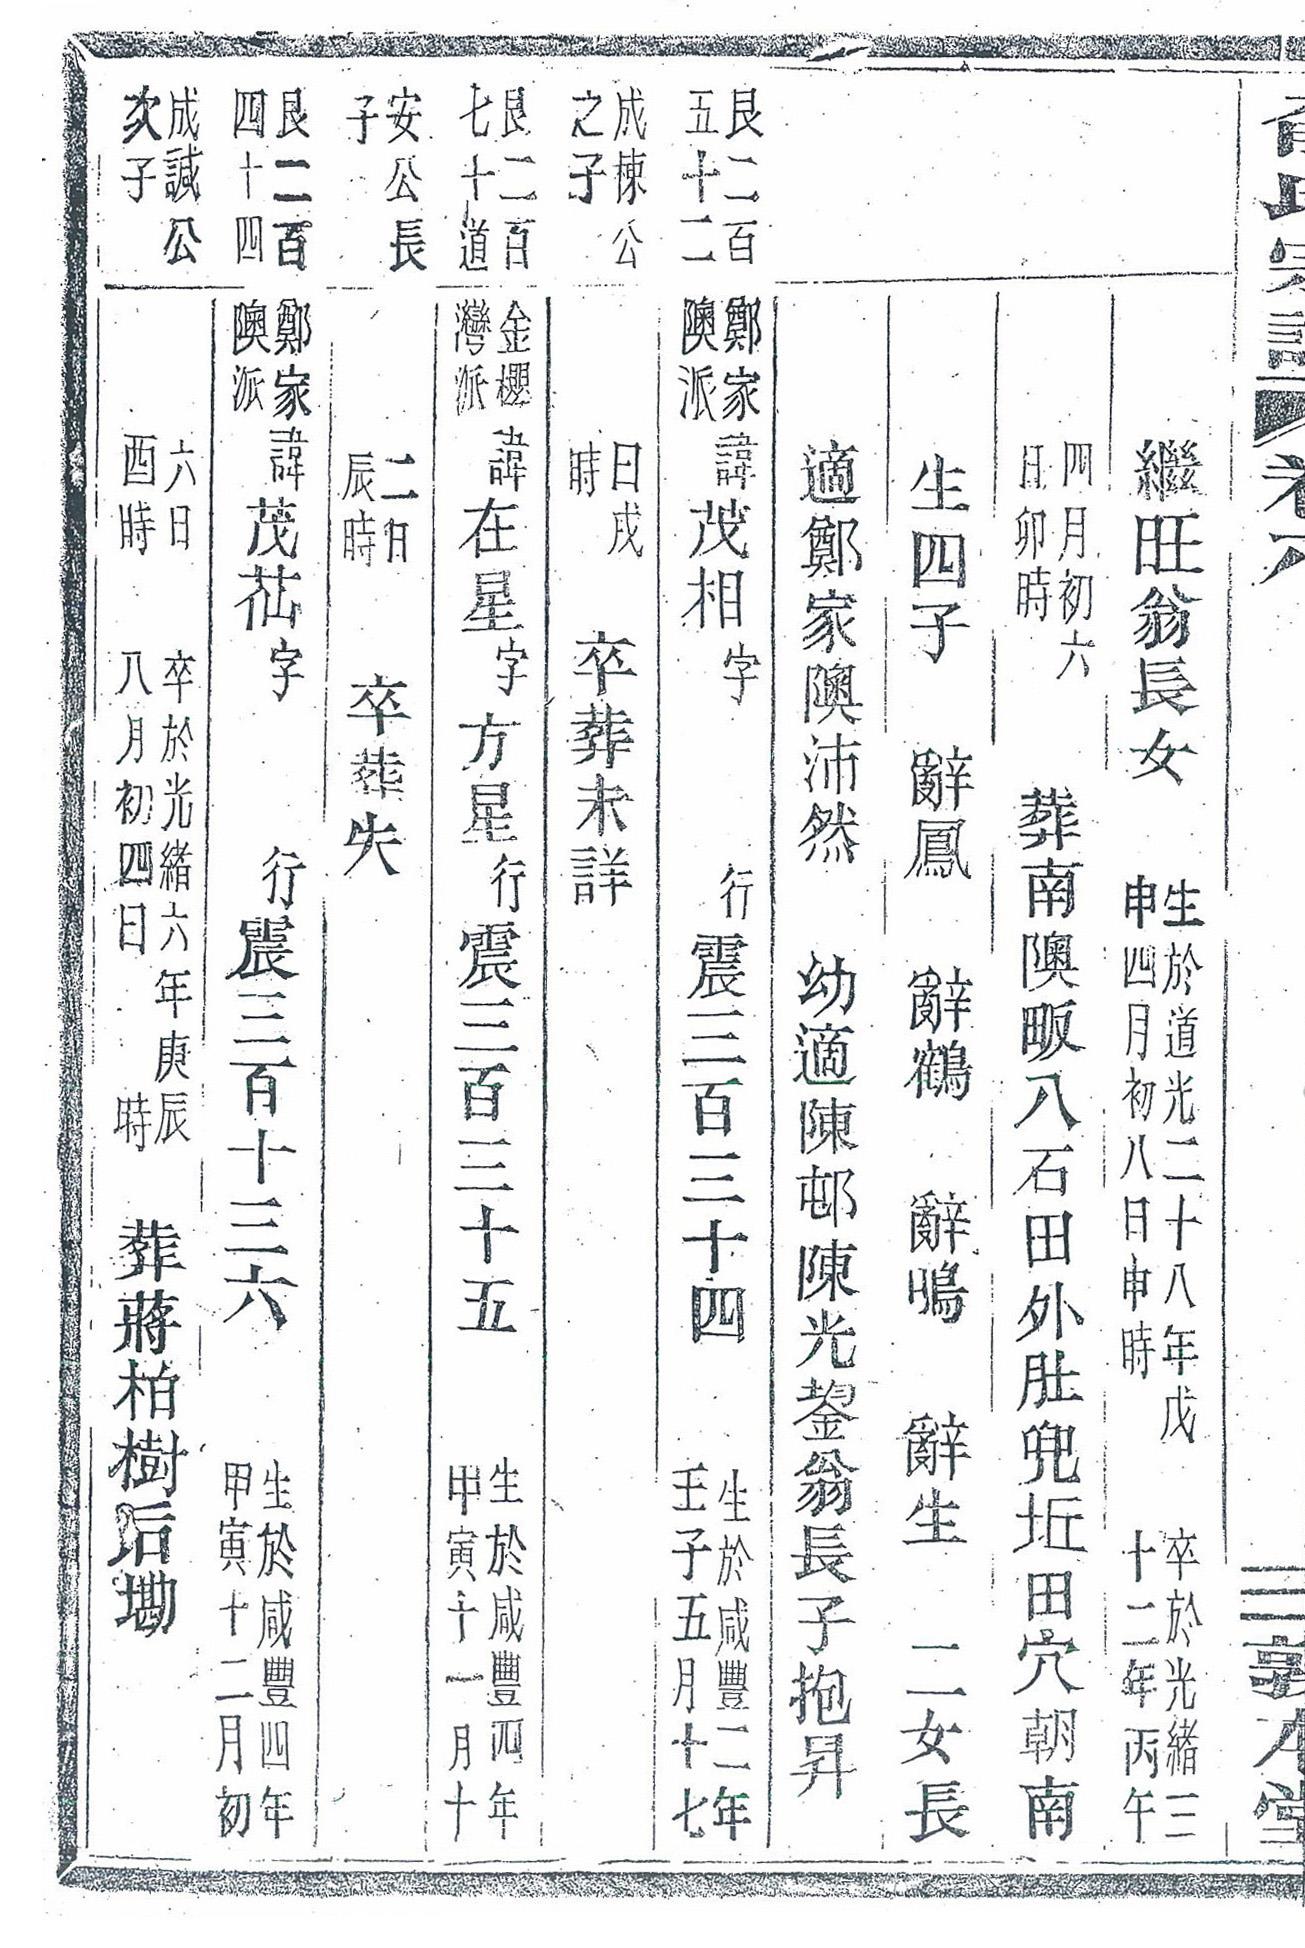 氏宗譜 卷六
敦本堂
繼旺翁長女 生於道光二十八年戊申四月初八日申時 卒於光緒三十二年丙午
四月初六日卯時 葬南隩畈八石田外肚兜坵田穴朝南
生四子 辭鳳 辭鶴 辭鳴 辭生 二女長
適鄭家隩沛然 幼適陳邨陳光鋆翁長子抱昇
艮二百五十二 鄭家隩派 諱茂相字 行震三百三十四 生於咸豐二年壬子五月十七
成棟公之子 日戌時 卒葬未詳
艮二百七十道 金櫻灣派 諱在星字方星行震三百三十五 生於咸豐四年甲寅十一月十
安公長子 二日辰時 卒葬失
艮二百四十四 鄭家隩派 諱茂字 行震三百十三六 生於咸豐四年甲寅十二月初
成誠公次子 六日酉時 卒於光緒六年庚辰八月初四日 時 葬蔣柏樹后墈